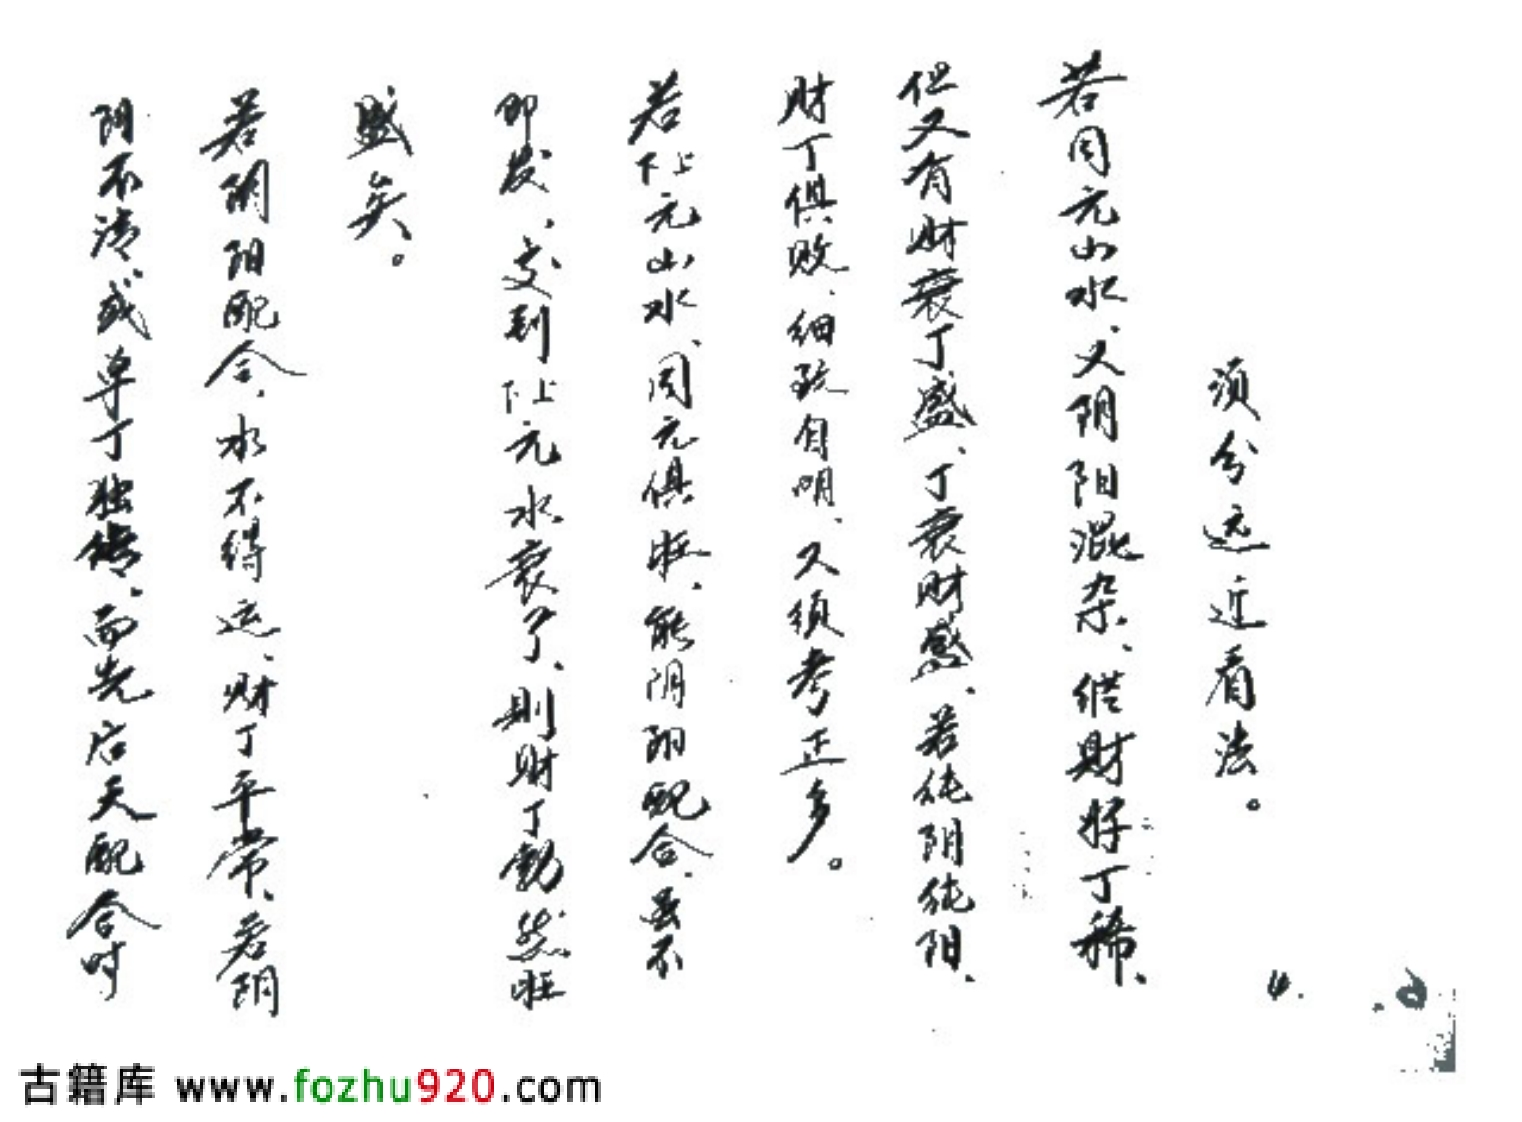 须分远近看法。
若同元山水、又阴阳混杂、纵财好丁稀、
但又有财衰丁盛、丁衰财盛、若纯阴纯阳、
财丁俱败、细玩自明、又须考正多。
若上下元山水、同元俱旺、能阴阳配合、虽不
即发、交到上下元水衰了、则财丁勃然旺
盛矣。
若阴阳配合、水不得运、财丁平常、若阴
阴不清、或单丁独传、而先后天配合时
4.
古籍库 www.fozhu920.com